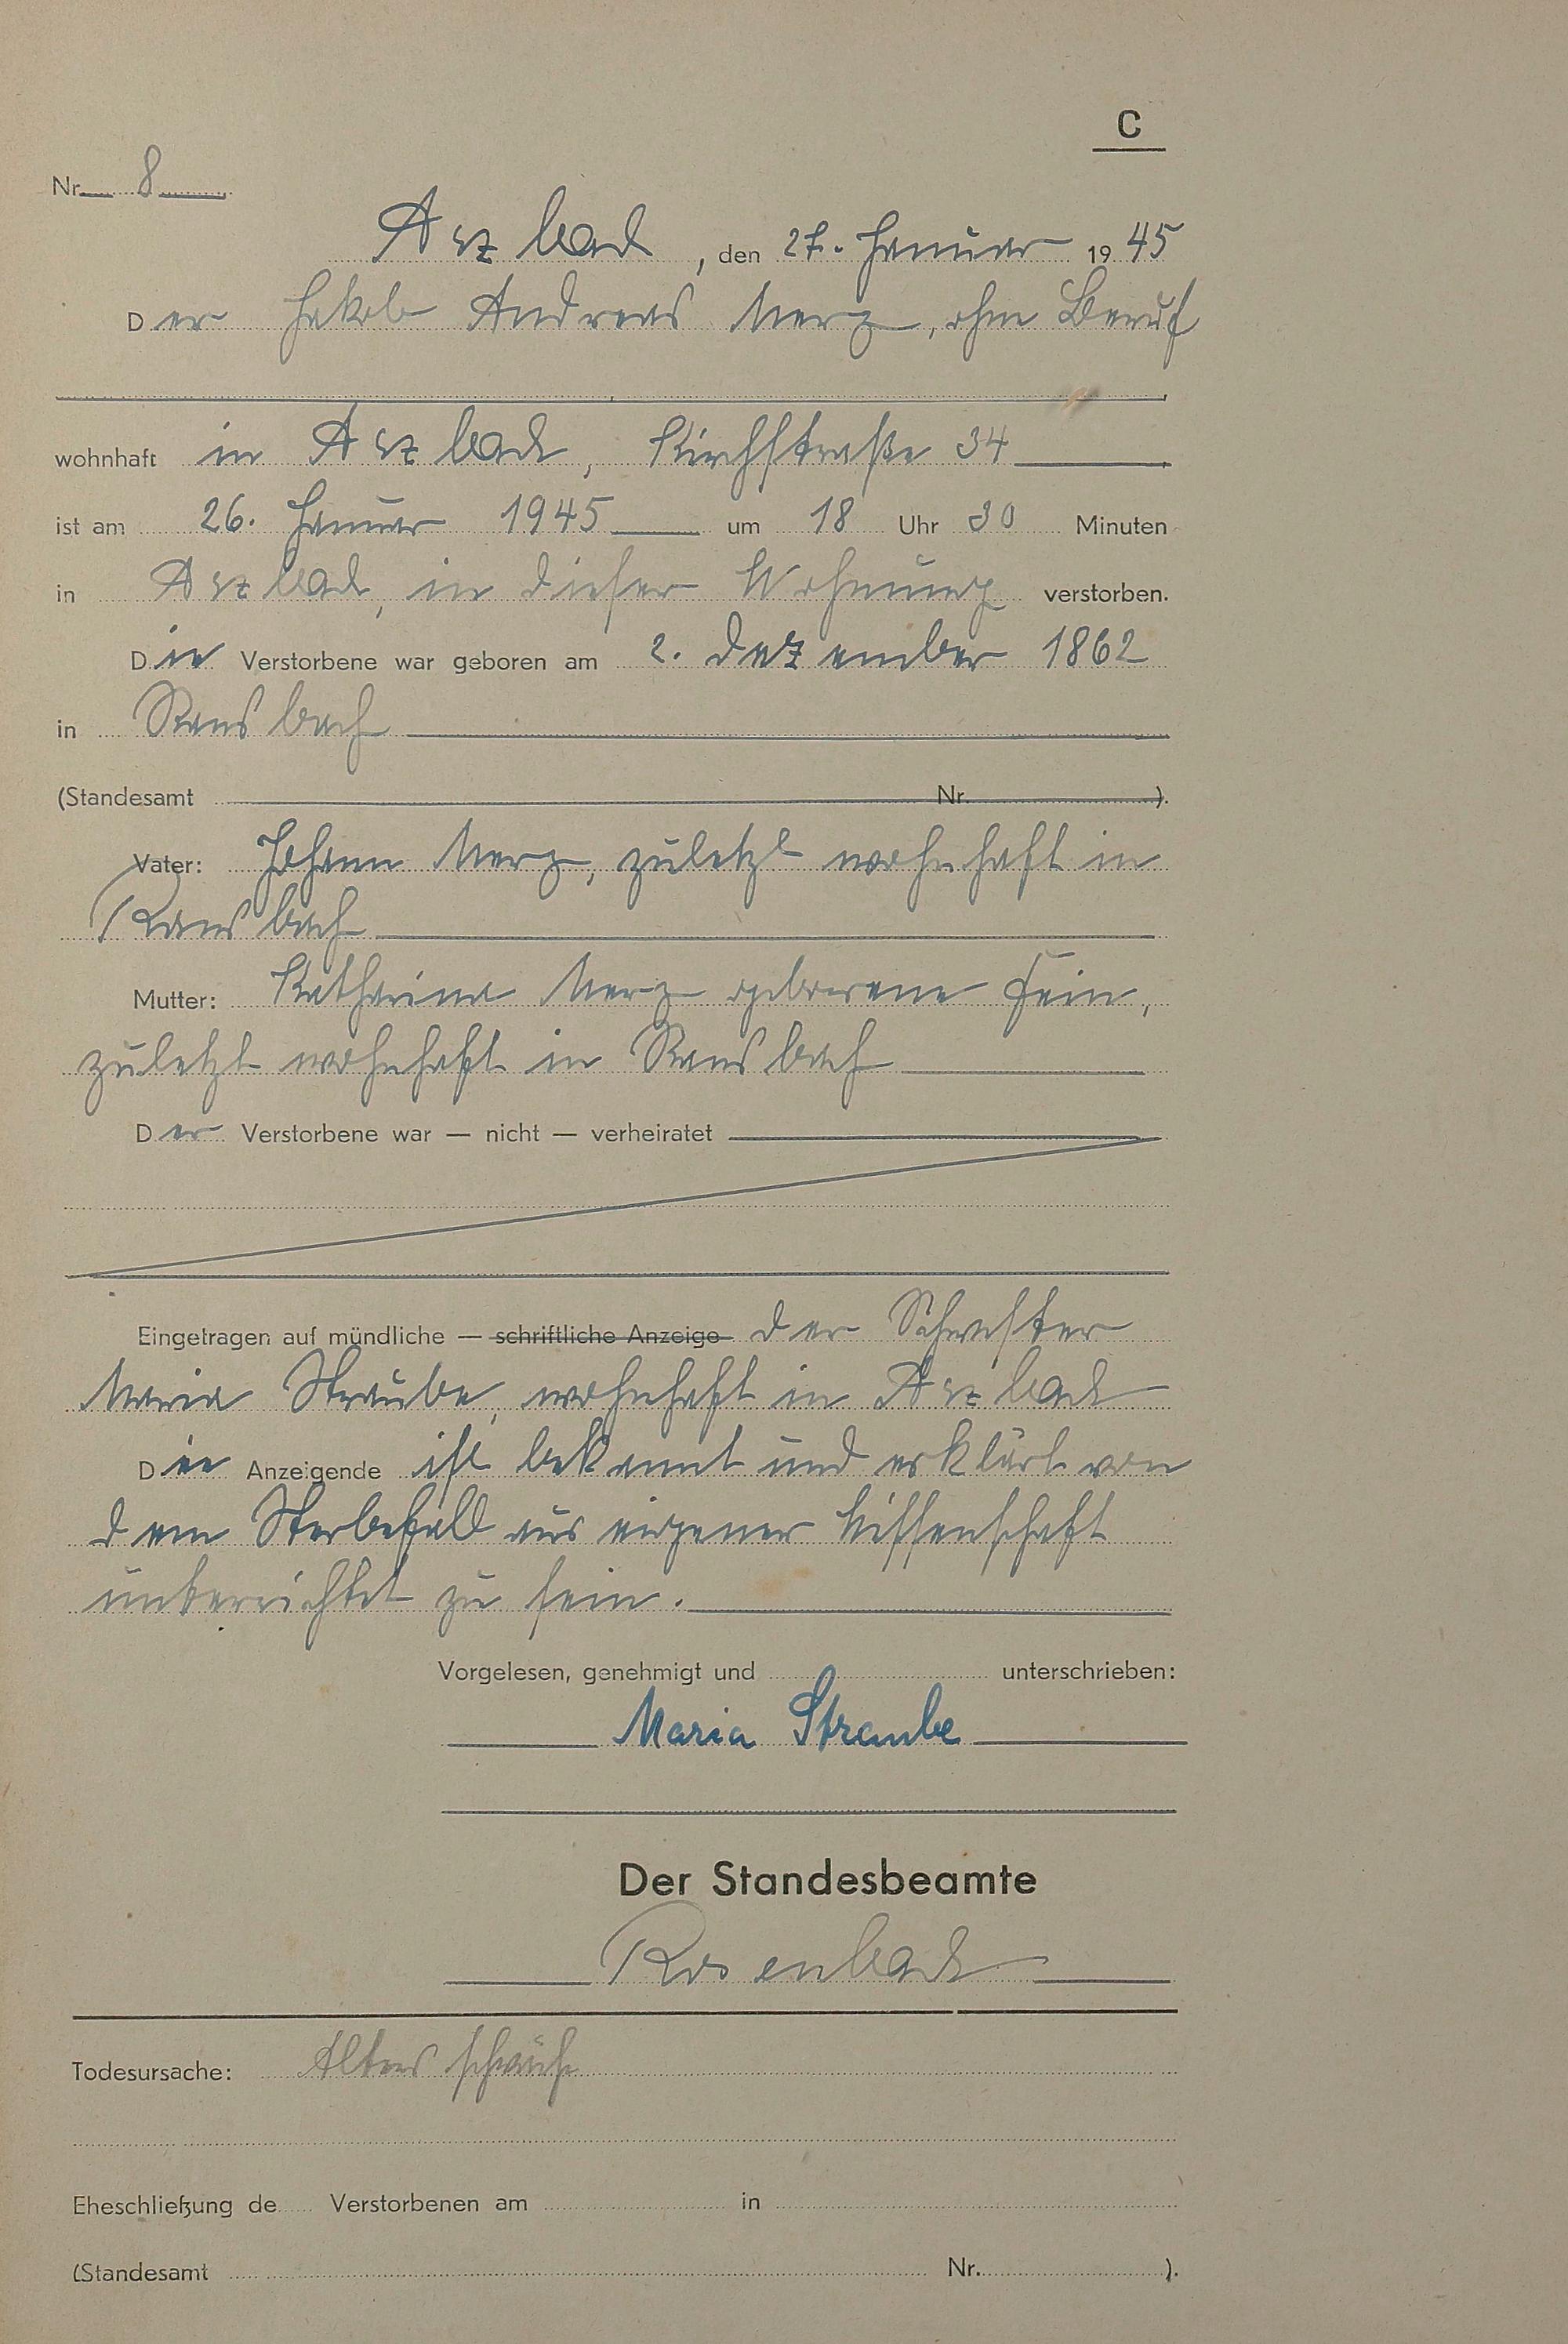 C
Nr. 8
Arzbach, den 27. Januar 1945
Der Jakob Andreas Merz, ohne Beruf
wohnhaft in Arzbach, Kirchstraße 34
ist am 26. Januar 1945 um 18 Uhr 30 Minuten
in Arzbach, in dieser Wohnung verstorben.
Die Verstorbene war geboren am 2. Dezember 1862
in Ransbach
(Standesamt Nr. ).
Vater: Johann Merz, zuletzt wohnhaft in
Ransbach
Mutter: Katharina Merz geborene Fein,
zuletzt wohnhaft in Ransbach
Der Verstorbene war — nicht — verheiratet
Eingetragen auf mündliche — schriftliche Anzeige der Schwester
Maria Straube, wohnhaft in Arzbach
Die Anzeigende ist bekannt und erklärt von
dem Sterbefall aus eigener Wissenschaft
unterrichtet zu sein.
Vorgelesen, genehmigt und unterschrieben:
Maria Straube
Der Standesbeamte
Rosenbach
Todesursache: Altersschwäche
Eheschließung de Verstorbenen am in
(Standesamt Nr. ).